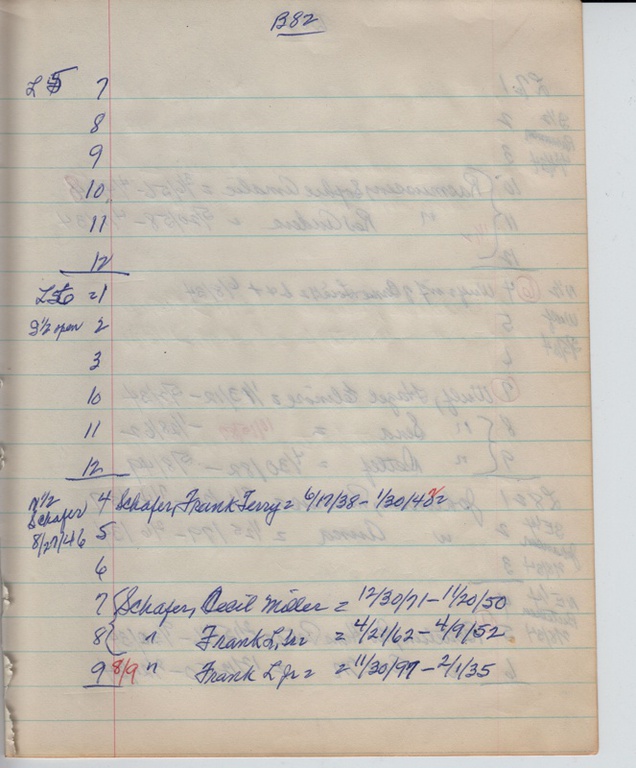 B82
L 5 7
8
9
10
11
12
L 6 = 1
S 1/2 open 2
3
10
11
12
N 1/2 4 Schafer, Frank Terry = 6/17/38 - 1/30/42
Schafer
8/27/46 5
6
7 { Schafer, Cecil Miller = 12/30/71 - 11/20/50
8 { " Frank L, Sr = 4/21/62 - 4/9/52
9 8/9 " Frank L Jr = = 11/30/97 - 2/1/35